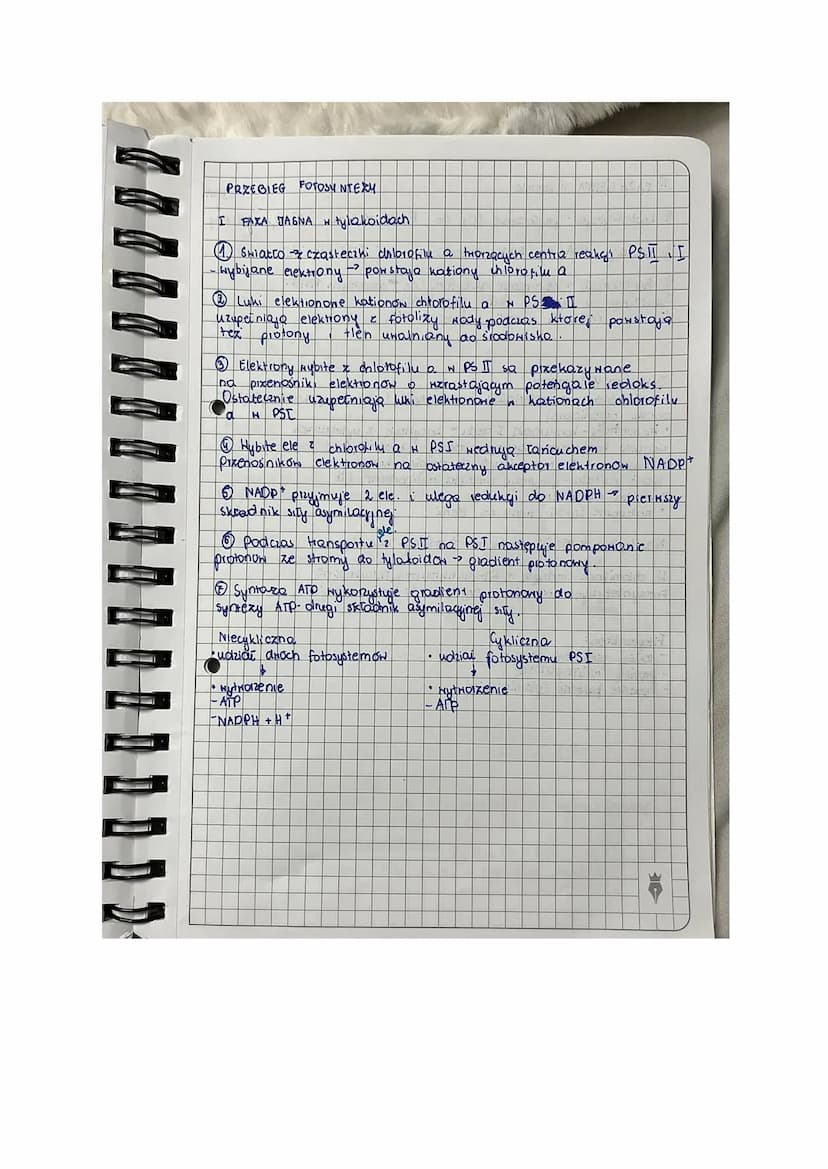 PRZEBIEG FOTOSYNTEZY
I FAZA JASNA w tylakoidach
① Światło → cząsteczki chlorofilu a tworzących centra reakcji PSII i I
- wybijane elektrony → powstają kationy chlorofilu a
② Luki elektronowe kationów chlorofilu a w PS II
uzupełniają elektrony z fotolizy wody podczas której powstają
też protony i tlen uwalniany do środowiska.
③ Elektrony wybite z chlorofilu a w PSII są przekazywane
na przenośniki elektronów o wzrastającym potencjale redoks.
Ostatecznie uzupełniają luki elektronowe w kationach chlorofilu
a w PSI
④ Wybite ele z chlorofilu a w PSI wędrują łańcuchem
przenośników elektronów na ostateczny akceptor elektronów NADP⁺
⑤ NADP⁺ przyjmuje 2 ele. i ulega redukcji do NADPH → pierwszy
składnik siły asymilacyjnej
⑥ Podczas transportu ele. z PSII na PSI następuje pompowanie
protonów ze stromy do tylakoidów → gradient protonowy.
⑦ Syntaza ATP wykorzystuje gradient protonowy do
syntezy ATP - drugi składnik asymilacyjnej siły.
Niecykliczna Cykliczna
• udział dwoch fotosystemów • udział fotosystemu PSI
↓ ↓
• wytworzenie • wytworzenie
- ATP - ATP
- NADPH + H⁺